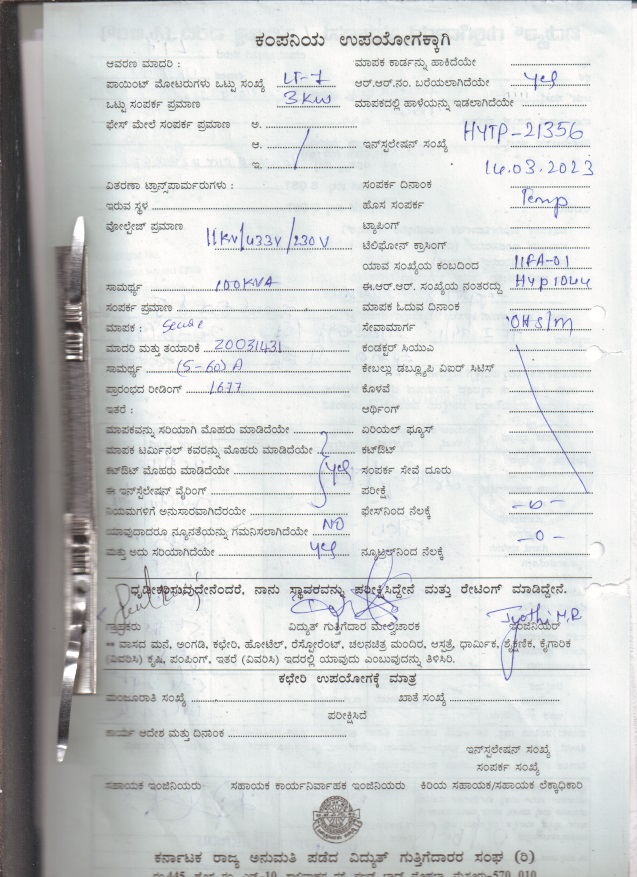 ಕಂಪನಿಯ ಉಪಯೋಗಕ್ಕಾಗಿ
ಆವರಣ ಮಾದರಿ : ಮಾಪಕ ಕಾರ್ಡನ್ನು ಹಾಕಿದೆಯೇ
ಪಾಯಿಂಟ್ ಮೋಟರುಗಳು ಒಟ್ಟು ಸಂಖ್ಯೆ LT-7 ಆರ್.ಆರ್.ನಂ. ಬರೆಯಲಾಗಿದೆಯೇ yes
ಒಟ್ಟು ಸಂಪರ್ಕ ಪ್ರಮಾಣ 3KW ಮಾಪಕದಲ್ಲಿ ಹಾಳೆಯನ್ನು ಇಡಲಾಗಿದೆಯೇ
ಫೇಸ್ ಮೇಲೆ ಸಂಪರ್ಕ ಪ್ರಮಾಣ ಅ.
ಆ. ಇನ್‌ಸ್ಟಲೇಷನ್ ಸಂಖ್ಯೆ HYTP-21356
ಇ. 14.03.2023
ವಿತರಣಾ ಟ್ರಾನ್ಸ್‌ಫಾರ್ಮರುಗಳು : ಸಂಪರ್ಕ ದಿನಾಂಕ
ಇರುವ ಸ್ಥಳ ಹೊಸ ಸಂಪರ್ಕ Temp
ವೋಲ್ಟೇಜ್ ಪ್ರಮಾಣ 11KV/433V/230V ಟ್ಯಾಪಿಂಗ್
ಟೆಲಿಫೋನ್ ಕ್ರಾಸಿಂಗ್
ಯಾವ ಸಂಖ್ಯೆಯ ಕಂಬದಿಂದ
ಸಾಮರ್ಥ್ಯ 100KVA ಈ.ಆರ್.ಆರ್. ಸಂಖ್ಯೆಯ ನಂತರದ್ದು
ಸಂಪರ್ಕ ಪ್ರಮಾಣ ಮಾಪಕ ಓದುವ ದಿನಾಂಕ
ಮಾಪಕ : ಸೇವಾಮಾರ್ಗ
ಮಾದರಿ ಮತ್ತು ತಯಾರಿಕೆ 20031431 ಕಂಡಕ್ಟರ್ ಸಿಯುಎ
ಸಾಮರ್ಥ್ಯ (5-60)A ಕೇಬಲ್ಲು ಡಬ್ಲ್ಯೂಪಿ ವಿಐರ್ ಸಿಟಿಸ್
ಪ್ರಾರಂಭದ ರೀಡಿಂಗ್ 1677 ಕೊಳವೆ
ಇತರೆ : ಆರ್ಥಿಂಗ್
ಮಾಪಕವನ್ನು ಸರಿಯಾಗಿ ಮೊಹರು ಮಾಡಿದೆಯೇ ಏರಿಯಲ್ ಫ್ಯೂಸ್
ಮಾಪಕ ಟರ್ಮಿನಲ್ ಕವರನ್ನು ಮೊಹರು ಮಾಡಿದೆಯೇ ಕಟ್‌ಔಟ್
ಕಟ್‌ಔಟ್ ಮೊಹರು ಮಾಡಿದೆಯೇ yes ಸಂಪರ್ಕ ಸೇವೆ ದೂರು
ಈ ಇನ್‌ಸ್ಟೆಲೇಷನ್ ವೈರಿಂಗ್ ಪರೀಕ್ಷೆ
ನಿಯಮಗಳಿಗೆ ಅನುಸಾರವಾಗಿದೆಯೇ ಫೇಸ್‌ನಿಂದ ನೆಲಕ್ಕೆ -0-
ಯಾವುದಾದರೂ ನ್ಯೂನತೆಯನ್ನು ಗಮನಿಸಲಾಗಿದೆಯೇ NO
ಮತ್ತು ಅದು ಸರಿಯಾಗಿದೆಯೇ yes ನ್ಯೂಟ್ರಲ್‌ನಿಂದ ನೆಲಕ್ಕೆ -0-
ಧೃಡೀಕರಿಸುವುದೇನೆಂದರೆ, ನಾನು ಸ್ಥಾವರವನ್ನು ಪರೀಕ್ಷಿಸಿದ್ದೇನೆ ಮತ್ತು ರೇಟಿಂಗ್ ಮಾಡಿದ್ದೇನೆ.
Jyothi M.R
ಗ್ರಾಹಕರು ವಿದ್ಯುತ್ ಗುತ್ತಿಗೆದಾರ ಮೇಲ್ವಿಚಾರಕ ಇಂಜಿನಿಯರ್
** ವಾಸದ ಮನೆ, ಅಂಗಡಿ, ಕಛೇರಿ, ಹೋಟೆಲ್, ರೆಸ್ಟೋರೆಂಟ್, ಚಲನಚಿತ್ರ ಮಂದಿರ, ಆಸ್ಪತ್ರೆ, ಧಾರ್ಮಿಕ, ಶೈಕ್ಷಣಿಕ, ಕೈಗಾರಿಕ
(ವಿವರಿಸಿ) ಕೃಷಿ, ಪಂಪಿಂಗ್, ಇತರೆ (ವಿವರಿಸಿ) ಇದರಲ್ಲಿ ಯಾವುದು ಎಂಬುವುದನ್ನು ತಿಳಿಸಿರಿ.
ಕಛೇರಿ ಉಪಯೋಗಕ್ಕೆ ಮಾತ್ರ
ಮಂಜೂರಾತಿ ಸಂಖ್ಯೆ ಖಾತೆ ಸಂಖ್ಯೆ
ಪರೀಕ್ಷಿಸಿದೆ
ಕಾರ್ಯ ಆದೇಶ ಮತ್ತು ದಿನಾಂಕ
ಇನ್‌ಸ್ಟಲೇಷನ್ ಸಂಖ್ಯೆ
ಸಂಪರ್ಕ ಸಂಖ್ಯೆ
ಸಹಾಯಕ ಇಂಜಿನಿಯರು ಸಹಾಯಕ ಕಾರ್ಯನಿರ್ವಾಹಕ ಇಂಜಿನಿಯರು ಕಿರಿಯ ಸಹಾಯಕ/ಸಹಾಯಕ ಲೆಕ್ಕಾಧಿಕಾರಿ
ಕರ್ನಾಟಕ ರಾಜ್ಯ ಅನುಮತಿ ಪಡೆದ ವಿದ್ಯುತ್ ಗುತ್ತಿಗೆದಾರರ ಸಂಘ (ರಿ)